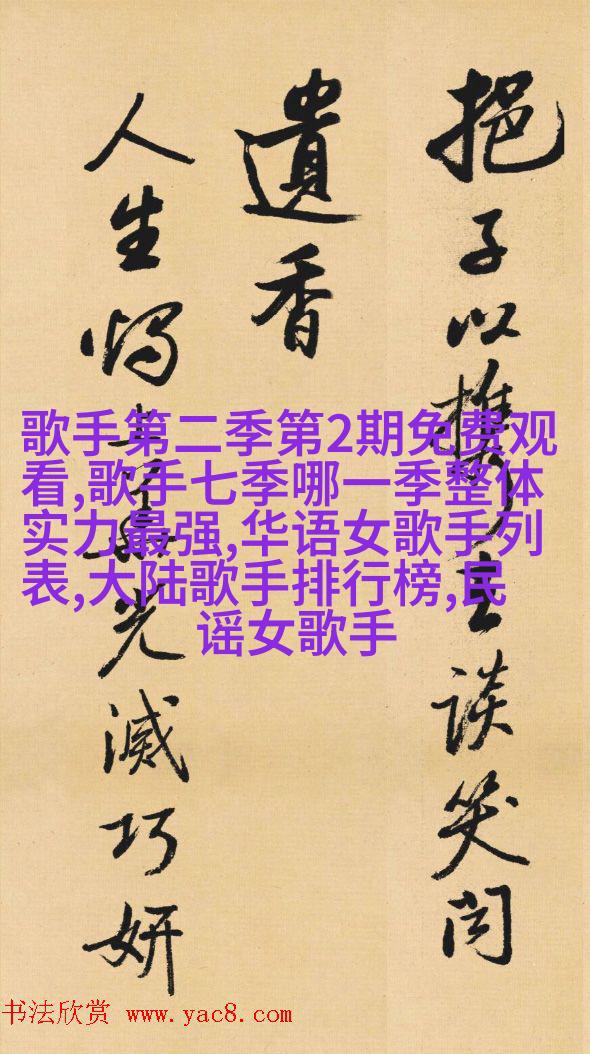 挹子以攜去談笑聞
遺香
人生燭上華光滅巧妍
歌手第二季第2期免费观
看,歌手七季哪一季整体
实力最强,华语女歌手列
表,大陆歌手排行榜,民
谣女歌手
书法欣赏 www.yac8.com